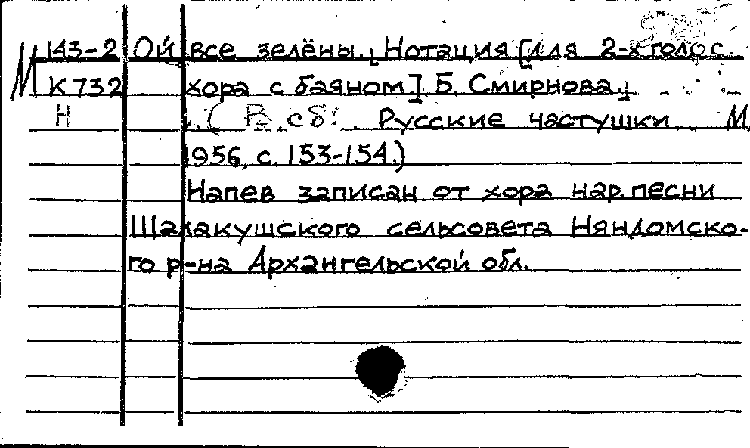 М 143-2 Ой все зелёны. Нотация [для 2-х голос.
К 732 хора с баяном] Б. Смирнова.
Н ( В сб: Русские частушки М
1956, с. 153-154.)
Напев записан от хора нар. песни
Шалакушского сельсовета Няндомско-
го р-на Архангельской обл.